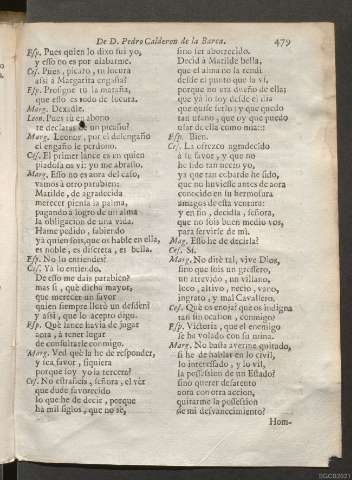 De D. Pedro Calderon de la Barca. 479
Esp. Pues quien lo dixo fui yo,
y esso no es por alabarme.
Ces. Pues, picaro, tu locura
assi à Margarita engaña?
Esp. Prosigue tù la maraña,
que esso es todo de locura.
Marg. Dexadle.
Leon. Pues tù en abono
te declaras de un
Marg. Leonor, por el desengaño
el engaño le perdono.
Ces. El primer lance es en quien
piadola en vi: yo me abraso.
Marg. Esso no es aora del caso,
vamos à otro parabien:
Matilde, de agradecida
merecer piensa la palma,
pagando à logro de un alma
la obligacion de una vida.
Hame pedido, sabiendo
yà quien sois, que os hable en ella,
es noble, es discreta, es bella.
Esp. No lo entiendes?
Ces. Yà lo entiendo.
De esso me dais parabien?
mas si, què dicha mayor,
que merecer un favor
quien siempre llorò un desden?
y assi, que lo acepto digo.
Esp. Què lance havia de jugar
aora, à tener lugar
de consultarle conmigo.
Marg. Ved què la he de responder,
y sea favor, siquiera
porque soy yo la tercera?
Ces. No estrañeis, señora, el vèr
que dude favorecido
lo que he de decir, porque
ha mil siglos, que no sè,
sino ser aborrecido.
Decid à Matilde bella,
que el alma la rendì
desde el punto que la vi,
porque no era dueño de ella;
que yà lo soy desde el dia
que quise serlo; y que quedo
tan ufano, que oy que puedo
usar de ella como mia:::
Esp. Bien.
Ces. La ofrezco agradecido
à su favor, y que no
he sido tan necio yo,
ya que tan cobarde he sido,
que no huviesse antes de aora
conocido en su hermosura
amagos de esta ventura:
y en fin, decidla, señora,
que no sois buen medio vos,
para servirle de mi.
Mag. Esso he de decirla?
Ces. Sì.
Marg. No dirè tal, vive Dios,
sino que sois un grossero,
un atrevido, un villano,
loco, altivo, necio, vano,
ingrato, y mal Cavallero.
Ces. Què os enoja? què os indigna
tan sin ocasion, conmigo?
Esp. Victoria, que el enemigo
se ha volado con su mina.
Marg. No basta averme quitado,
si he de hablar en lo civil,
lo interessado, y lo vil,
la possession de un Estado?
sino querer desatento
aora con otra accion,
quitarme la possession
de mi desvanecimiento?
Hom-
DGCB2021